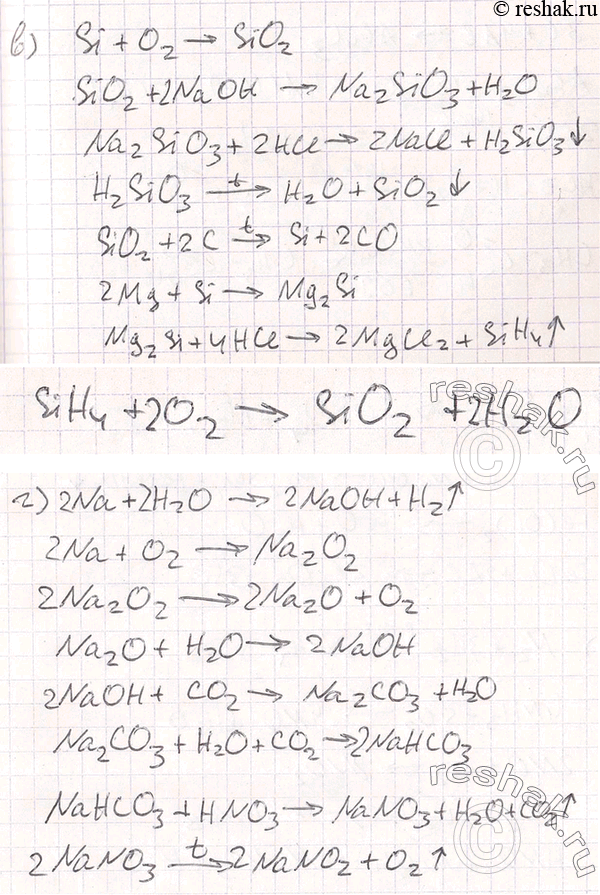 © reshak.ru
в) Si + O₂ → SiO₂
SiO₂ + 2NaOH → Na₂SiO₃ + H₂O
Na₂SiO₃ + 2HCl → 2NaCl + H₂SiO₃↓
H₂SiO₃ —t→ H₂O + SiO₂↓
SiO₂ + 2C —t→ Si + 2CO
2Mg + Si → Mg₂Si
Mg₂Si + 4HCl → 2MgCl₂ + SiH₄↑
SiH₄ + 2O₂ → SiO₂ + 2H₂O
reshak.ru ©
г) 2Na + 2H₂O → 2NaOH + H₂↑
2Na + O₂ → Na₂O₂
2Na₂O₂ → 2Na₂O + O₂
Na₂O + H₂O → 2NaOH
2NaOH + CO₂ → Na₂CO₃ + H₂O
Na₂CO₃ + H₂O + CO₂ → 2NaHCO₃
NaHCO₃ + HNO₃ → NaNO₃ + H₂O + CO₂↑
2NaNO₃ —t→ 2NaNO₂ + O₂↑
reshak.ru ©